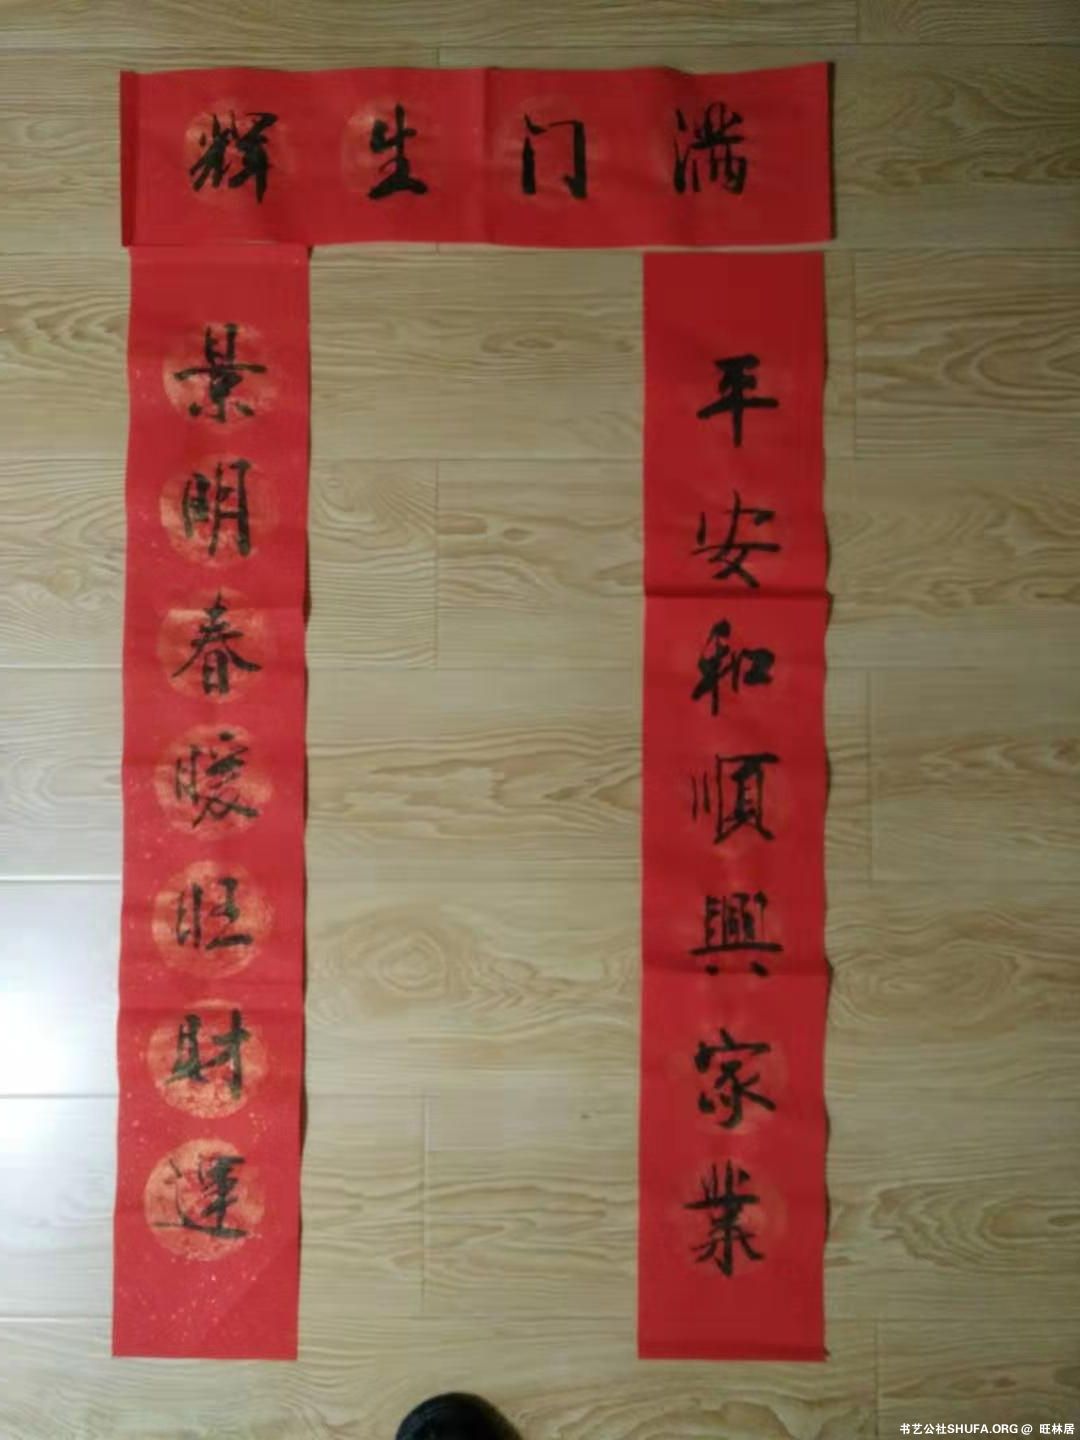 满门生辉
平安和順興家業
景明春暖旺財運
书艺公社SHUFA.ORG @ 旺林居